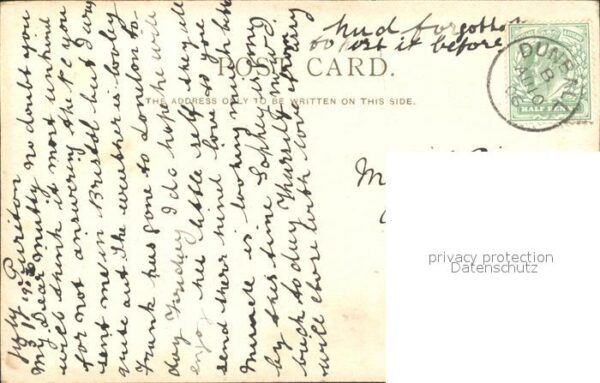 had forgotten
to post it before
POST CARD.
THE ADDRESS ONLY TO BE WRITTEN ON THIS SIDE.
DUNB
B
AU 0
06
HALFPENNY
M
privacy protection
Datenschutz
Puriton
July 31 1906
My Dear Mutty no doubt you
will think it most unkind
for not answering the P.C you
sent me in Bristol but I was
quite out the weather is lovely
Frank has gone to London to
day Friday I do hope he will
enjoy his little self they all
send their kind love to you
Muncle is looking much better
by this time Sophey is
back to day Thursday
will close with love from